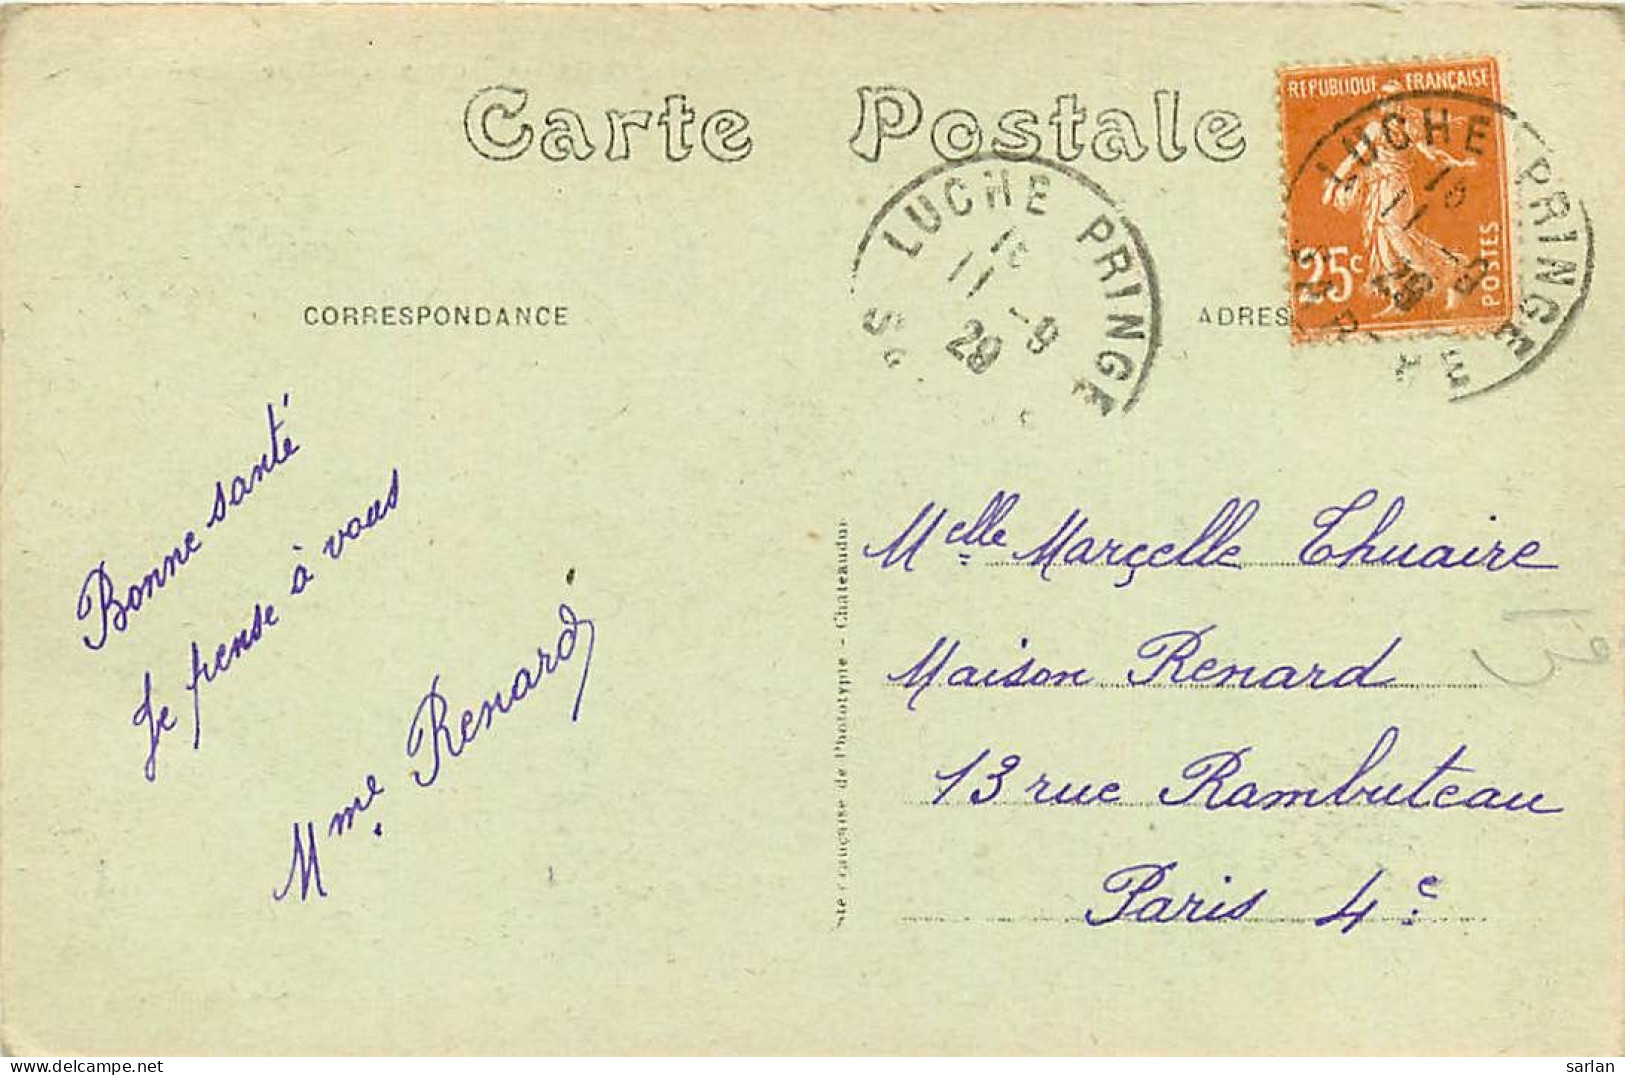 Carte Postale
RÉPUBLIQUE FRANÇAISE
25c
POSTES
LUCHE PRINGE
11 -9
29
LUCHE PRINGE
11 -9
CORRESPONDANCE
ADRES
Bonne santé
Je pense à vous
Mme Renard
Melle Marçelle Thuaire
Maison Renard
13 rue Rambuteau
Paris 4e
13
Sté Française de Phototypie - Chateaudun
sarlan